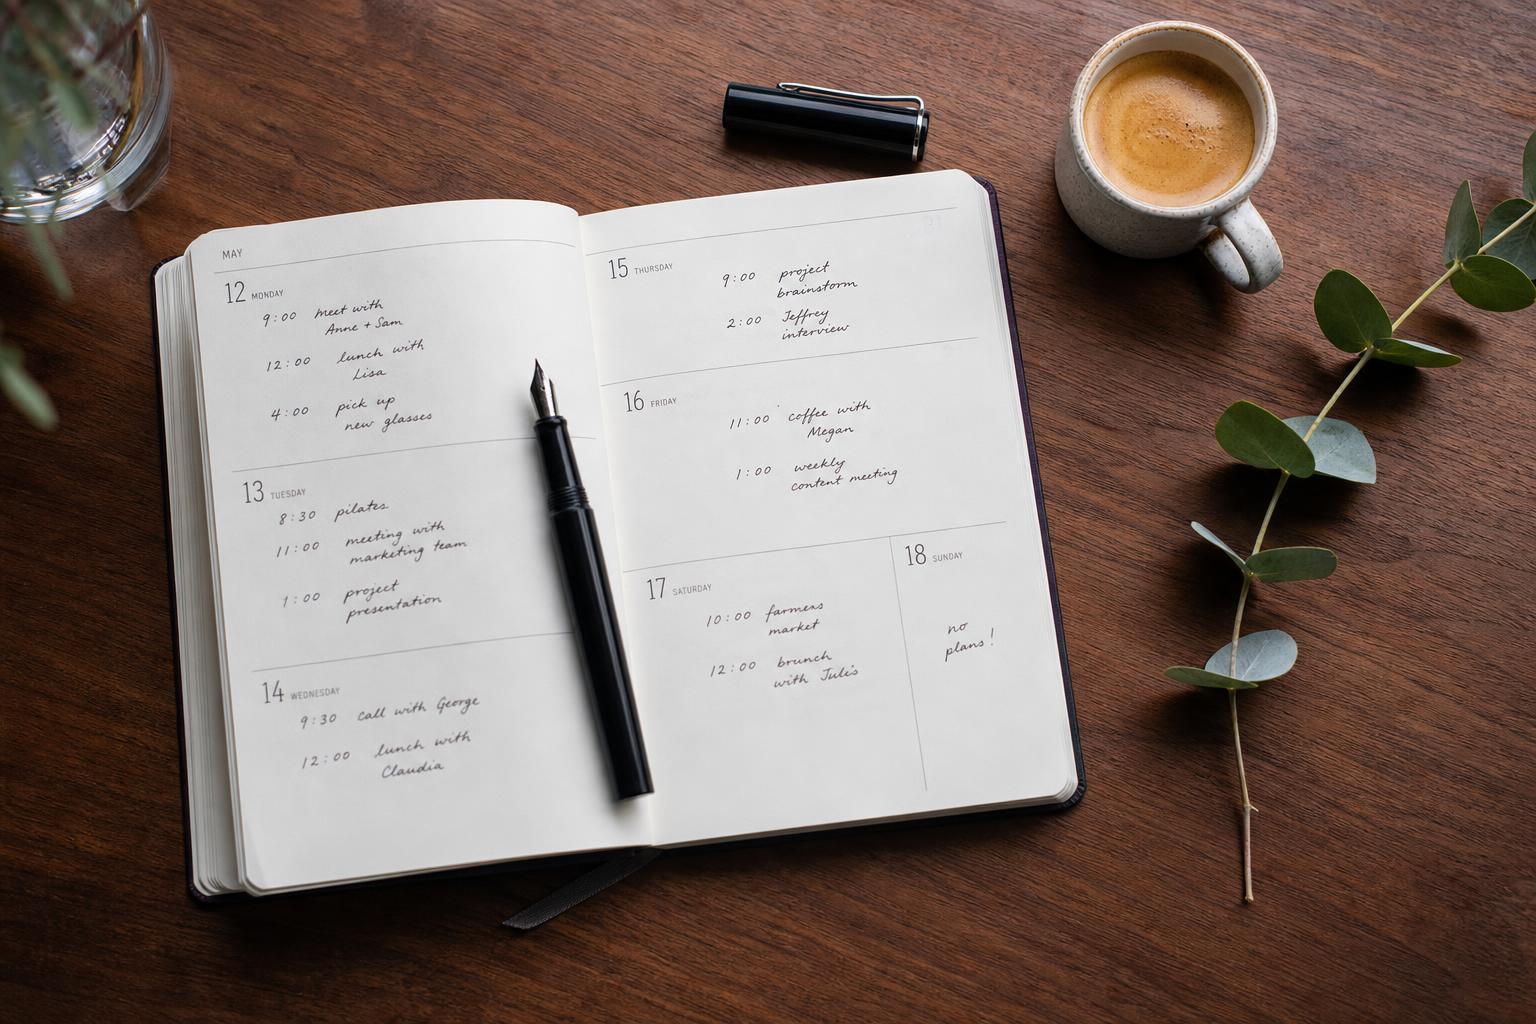 MAY
12 MONDAY
9:00 meet with
Anne + Sam
12:00 lunch with
Lisa
4:00 pick up
new glasses
13 TUESDAY
8:30 pilates
11:00 meeting with
marketing team
1:00 project
presentation
14 WEDNESDAY
9:30 call with George
12:00 lunch with
Claudia
15 THURSDAY
9:00 project
brainstorm
2:00 Jeffrey
interview
16 FRIDAY
11:00 coffee with
Megan
1:00 weekly
content meeting
17 SATURDAY
10:00 farmers
market
12:00 brunch
with
18 SUNDAY
no
plans!